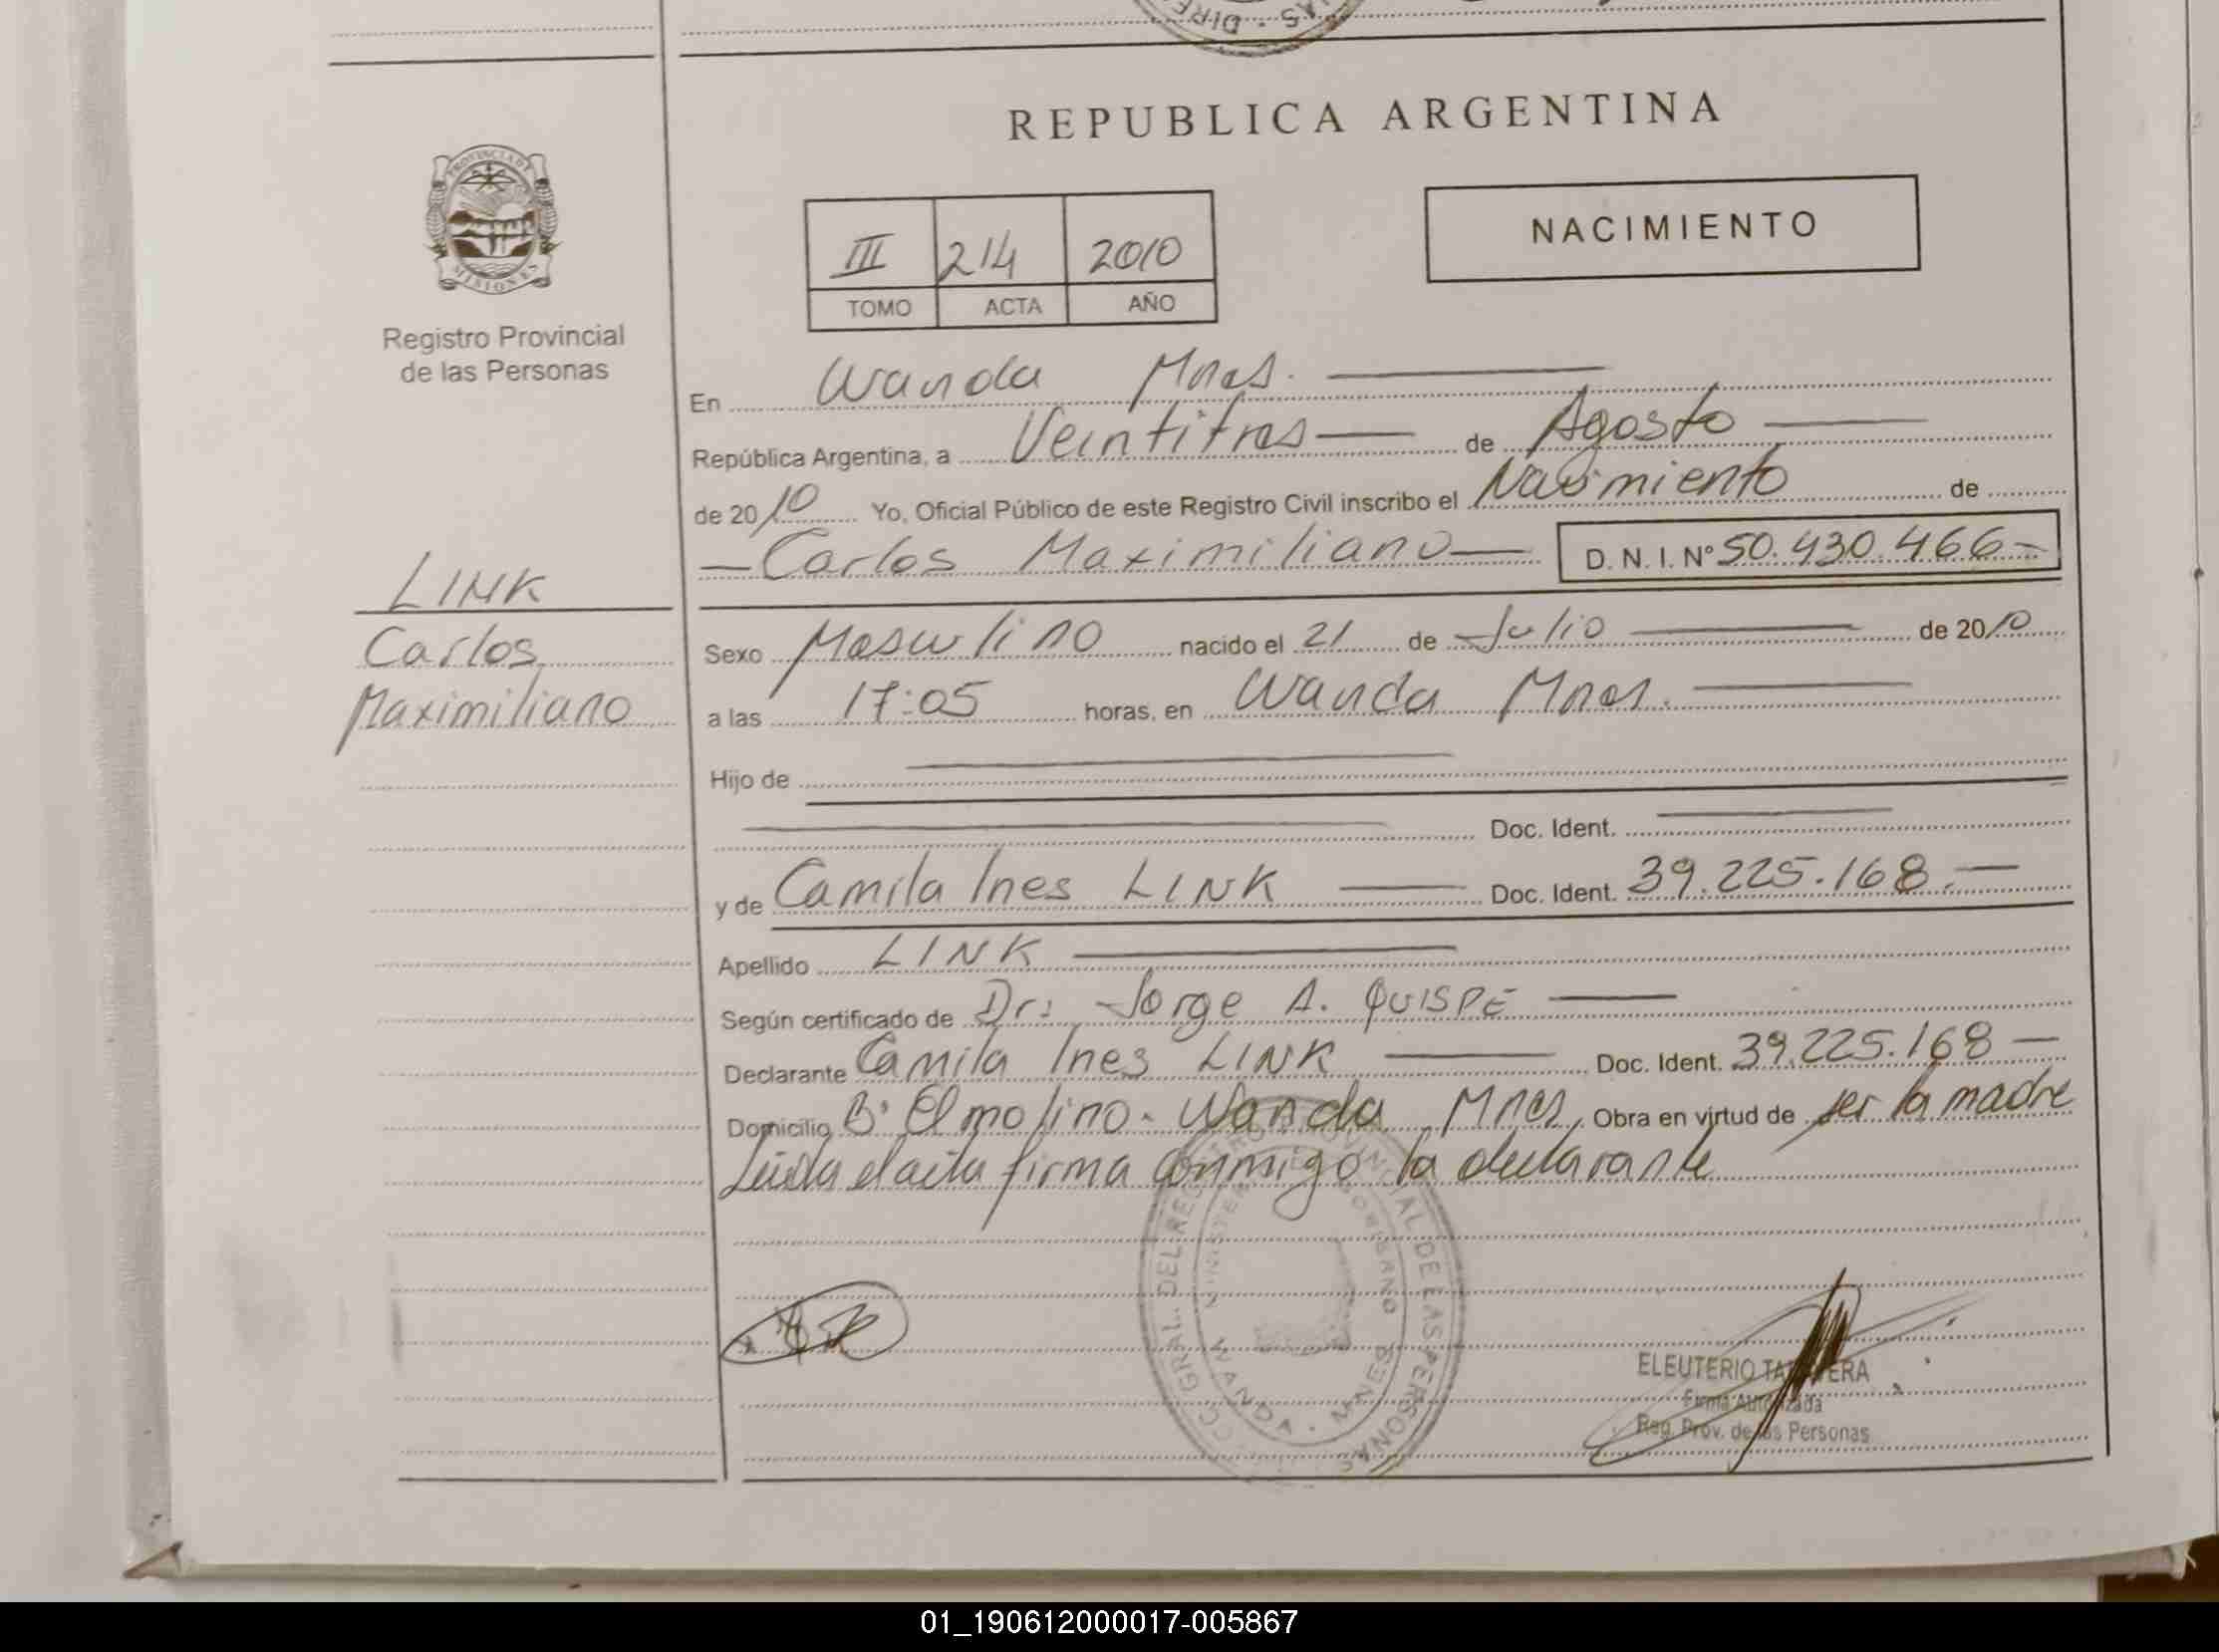 REPUBLICA ARGENTINA
PROVINCIA DE
MISIONES
Registro Provincial
de las Personas
NACIMIENTO
III 214 2010
TOMO ACTA AÑO
En Wanda Mnes.
República Argentina, a Veintitres de Agosto
de 2010 Yo, Oficial Público de este Registro Civil inscribo el Nacimiento de
Carlos Maximiliano D. N. I. Nº 50.430.466-
LINK
Carlos
Maximiliano
Sexo Masculino nacido el 21 de Julio de 2010
a las 17:05 horas, en Wanda Mnes.
Hijo de
Doc. Ident.
y de Camila Ines LINK Doc. Ident. 39.225.168.-
Apellido LINK
Según certificado de Dr: Jorge A. QUISPE
Declarante Camila Ines LINK Doc. Ident. 39.225.168-
Domicilio Bº El molino - Wanda Mnes, Obra en virtud de ser la madre
Leída el acta firma conmigo la declarante
WANDA - MNES
ELEUTERIO
Firma Autorizada
Reg. Prov. de las Personas
01_190612000017-005867